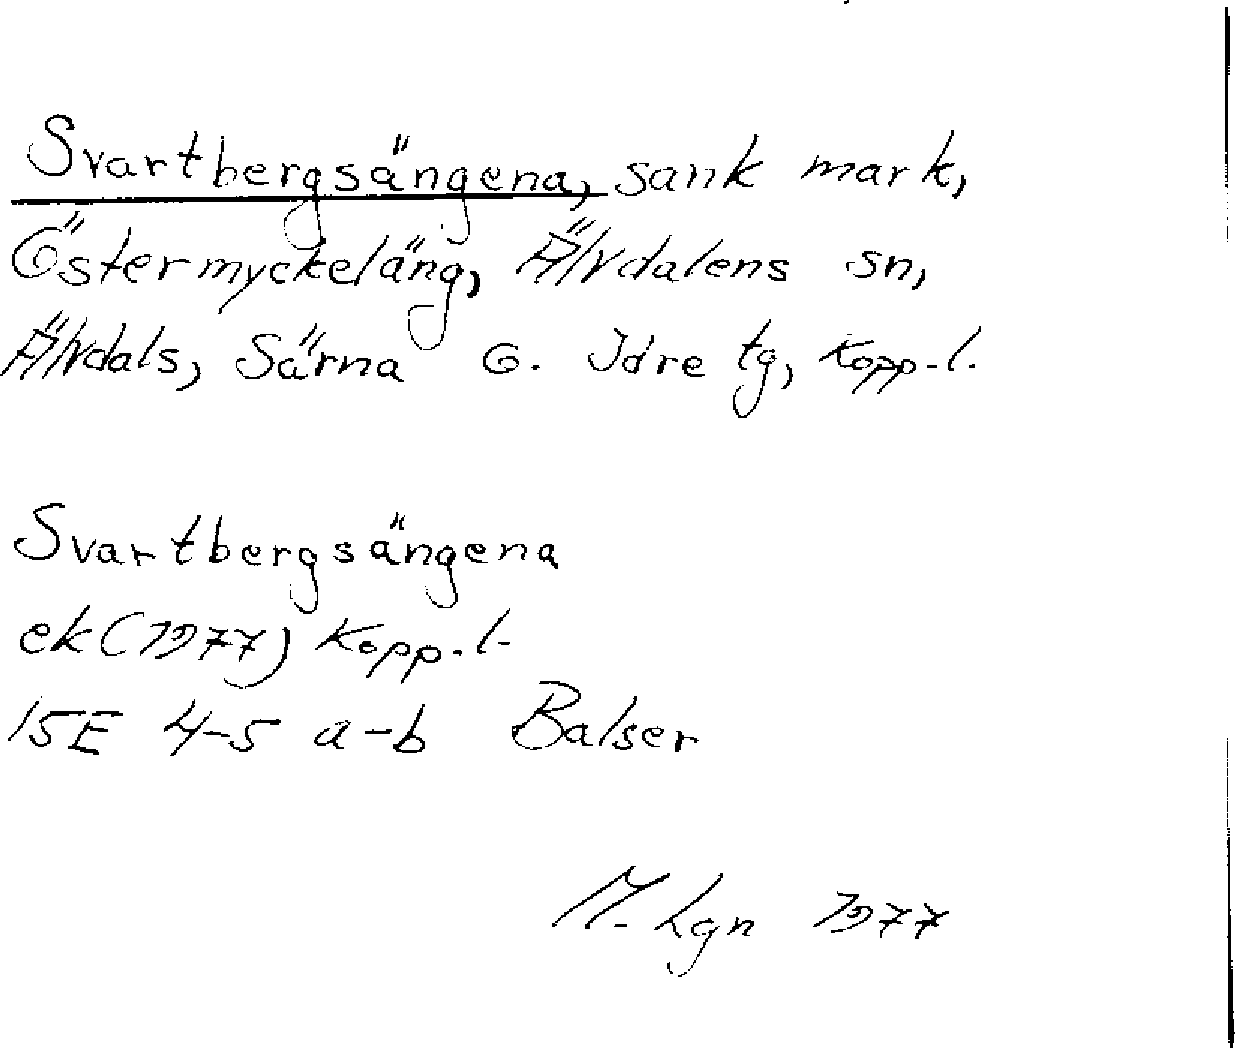 Svartbergsängena, sank mark,
Östermyckeläng, Älvdalens sn,
Älvdals, Särna o. Idre tg, Kopp.l.
Svartbergsängena
ek(1977) Kopp.l.
15E 4-5 a-b Balser
M. Lgn 1977